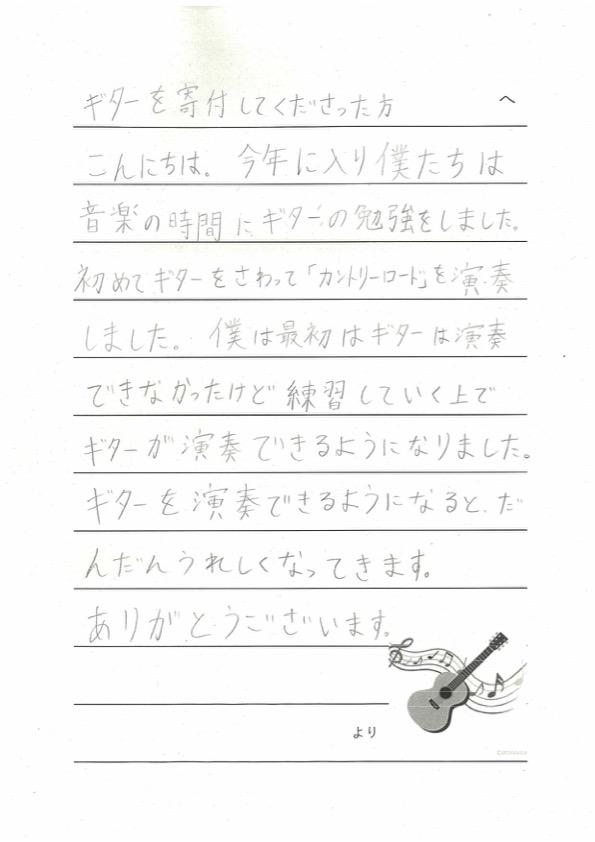 ギターを寄付してくださった方 へ
こんにちは。今年に入り僕たちは
音楽の時間にギターの勉強をしました。
初めてギターをさわって「カントリーロード」を演奏
しました。僕は最初はギターは演奏
できなかったけど練習していく上で
ギターが演奏できるようになりました。
ギターを演奏できるようになると、だ
んだんうれしくなってきます。
ありがとうございます。
より